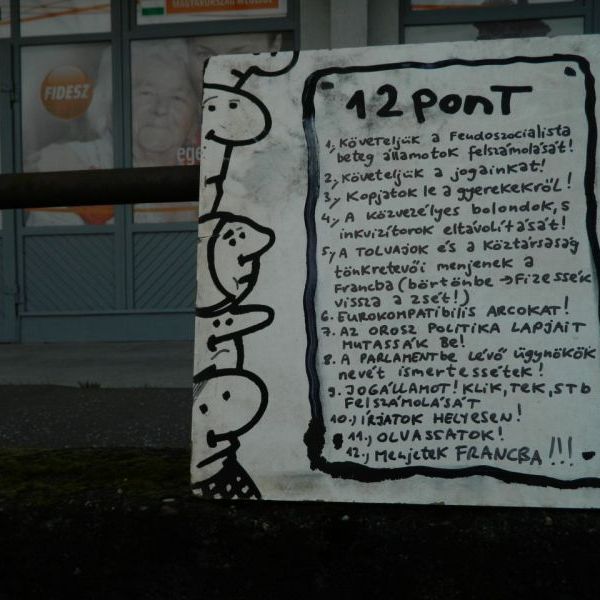 MAGYARORSZÁG
FIDESZ
ege
12 ponT
1, Követeljük a Feudoszocialista
beteg államotok felszámolását!
2, Követeljük a jogainkat!
3, Kopjatok le a gyerekekről!
4, A közvezélyes bolondok, s
inkvizítorok eltávolítását!
5, A TOLVAJOK és a Köztársaság
tönkretevői menjenek a
Francba (börtönbe → Fizessék
vissza a zsét!)
6. EUROKOMPATIBILIS ARCOKAT!
7. AZ OROSZ POLITIKA LAPJAIT
MUTASSÁK BE!
8. A PARLAMENTbe LÉVŐ ÜGYNÖKÖK
nevét ismertessétek!
9. JOGÁLLAMOT! KLIK, TEK, STb
FELSZÁMOLÁSÁT
10., ÍRJATOK HELYESEN!
11., OLVASSATOK!
12., Menjetek FRANCBA!!!